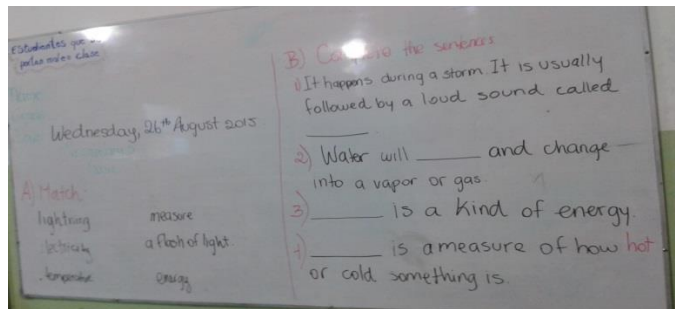 Estudiantes que
Wednesday, 26th August 2015
A) Match
lightning measure
electricity a flash of light.
temperature energy
B) Complete the sentences
1) It happens during a storm. It is usually
followed by a loud sound called
________
2) Water will ________ and change
into a vapor or gas.
3) ________ is a kind of energy.
4) ________ is a measure of how hot
or cold something is.